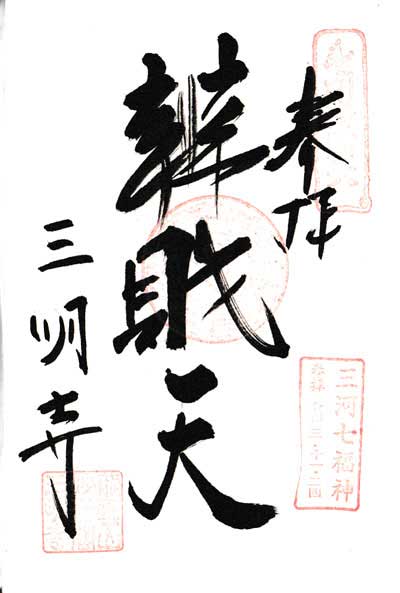 奉拝
辨財天
三河七福神
三明寺